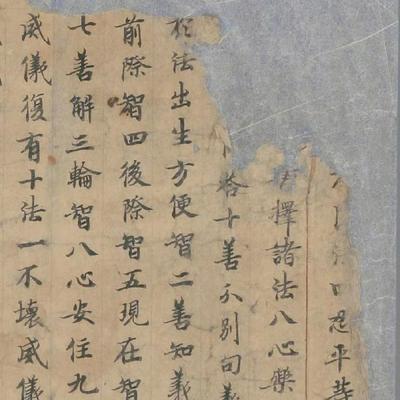 忍平等
擇諸法八心樂
答十善分別句義
法出生方便智二善知義
前際智四後際智五現在智
七善解三輪智八心安住九
威儀復有十法一不壞威儀